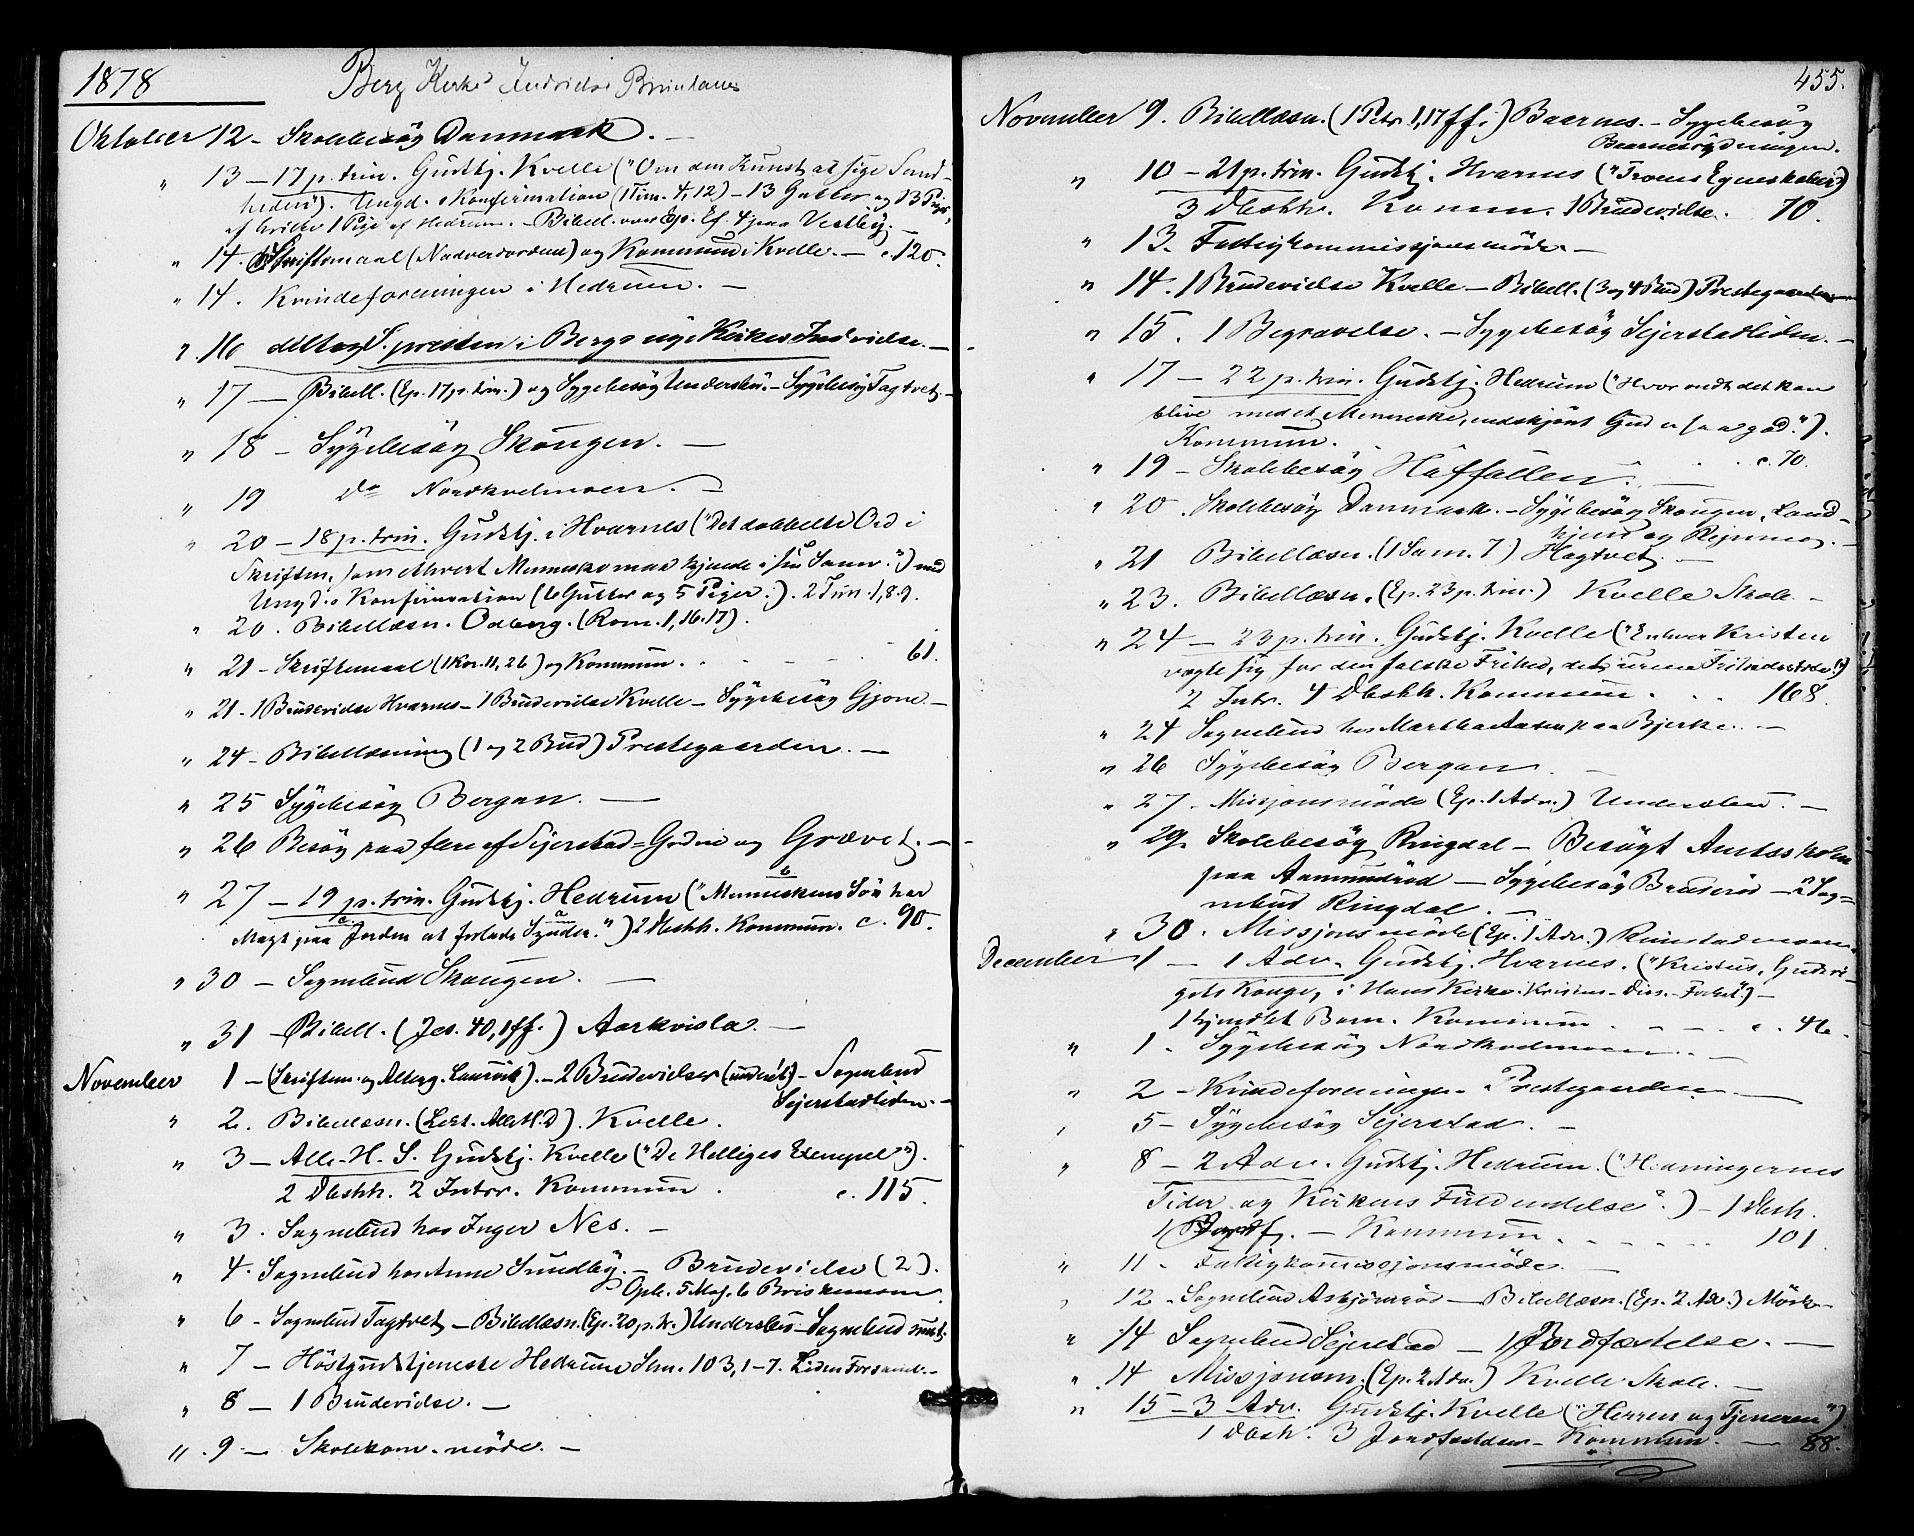 1878
Berg Kirkes Indvielse
Oktober 12 - Skolebesøg Danmark. -
" 13 - 17 p. trin. Gudstj. Kvelle ("Om den Kunst at sige Sand-
heden"). Ungd. Konfirmation (1 Tim. 4, 12) - 13 Gutter og 13 Piger,
af hvilke 1 Pige af Hedrum. - Bibell. over Ep. Ef. 4 paa Vestby. -
" 14. Skriftemaal (Nadverordene) og Kommun i Kvelle. - c. 120.
" 14. Kvindeforeningen i Hedrum. -
" 16 deltog S. presten i Bergs nye Kirkes Indvielse. -
" 17 - Bibell. (Ep. 17 p. trin.) og Sygebesøg Undersbo. - Sygebesøg Tagtvet. -
" 18 - Sygebesøg Skougen. -
" 19 Do Nordkvelmoen. -
" 20 - 18 p. trin. Gudstj. i Hvarnes ("Det dobbelte Ord i
Skriften, som ethvert Menneske maa kjende i sin Samv.") med
Ungd. Konfirmation (6 Gutter og 5 Piger.). 2 Tim. 1, 8.9.
" 20. Bibellæsn. Odberg. (Rom. 1, 16.17).
" 21 - Skriftemaal (1 Kor. 11, 26) og Kommun. 61.
" 21 - 1 Brudevielse Hvarnes - 1 Brudevielse Kvelle - Sygebesøg Gjone. -
" 24 - Bibellæsning (1 og 2 Bud) Prestegaarden. -
" 25 Sygebesøg Bergan. -
" 26 Besøg paa flere af Sjerstad-Godene og Grævet. -
" 27 - 19 p. trin. Gudstj. Hedrum ("Menneskens Søn har
Magt paa Jorden at forlade Synder.") 2 Dbshh. Kommun. c. 90.
" 30 - Sognebud Skougen. -
" 31 - Bibell. (Jes. 40, 1 ff.) Aarkvisla. -
November 1 - (Skriftem. og Alterg. Laurvik). - 2 Brudevielser - Sognebud
Sejerstadliden. -
" 2. Bibellæsn. (Lect. Alle H. D). Kvelle.
" 3 - Alle-H. S. Gudstj. Kvelle ("De Helliges Exempel").
2 Dbshh. 2 Intr. Kommun. c. 115.
" 3. Sognebud hos Inger Nes. -
" 4. Sognebud hos Anne Sundby. - Brudevielse (2).
Oph. 5 Mos. 6 Briskemoen
" 6 - Sognebud Tagtvet - Bibellæsn. (Ep. 20 p. tr.) Undersbo - Sognebud
" 7 - Høstgudstjeneste Hedrum Slm. 103, 1-7. Liden Forsaml. -
" 8 - 1 Brudevielse. -
" 9 - Skolekom. møde. -
455.
November 9. Bibellæsn. (1 Petr. 1, 17 ff.) Baernes. - Sygebesøg
Baernesrydningen.
" 10 - 21 p. trin. Gudstj. Hvarnes ("Troens Egenskaber")
3 Dbshh. Komm. 1 Brudevielse. 70.
" 13. Fattigkommissjonsmøde. -
" 14. 1 Brudevielse Kvelle - Bibell. (3 og 4 Bud) Prestegaarden
" 15. 1 Begravelse. - Sygebesøg Sejerstadliden. -
" 17 - 22 p. trin. Gudstj. Hedrum ("Hvor ondt det kan
blive med et Menneske, endskjønt Gud er saa god.").
Kommun. c. 70.
" 19 - Skolebesøg Haffallen. -
" 20. Skolebesøg Danmark. - Sygebesøg Skougen, Land-
" 21 Bibellæsn. (1 Sam. 7) Hagtvet. -
" 23. Bibellæsn. (Ep. 23 p. trin.) Kvelle Skole. -
" 24 - 23 p. trin. Gudstj. Kvelle ("Enhver Kristen
vogte sig for den falske Frihed,
2 Intr. 4 Dbshh. Kommun. 168.
" 24 Sognebud hos Martha Aasen paa Bjerke. -
" 26 Sygebesøg Bergan. -
" 27. Missjonsmøde (Ep. 1 Adv.) Undersbo. -
" 29. Skolebesøg Ringdal - Besøgt Amtsskolen
paa Aamundrød - Sygebesøg Bruserød - 2 Sog-
nebud Ringdal. -
" 30. Missjonsmøde (Ep. 1 Adv.) Rimstadmoen
December 1 - 1 Adv. Gudstj. Hvarnes. ("Kristus, Guds ri-
gets Konge, i Hans Kirke: -
1 hjemdbt Barn. Kommun. c. 46.
" 1. Sygebesøg Nordkvelmoen. -
" 2 - Kvindeforening. Prestegaarden. -
" 5 - Sygebesøg Sejerstad. -
" 8 - 2 Adv. Gudstj. Hedrum. ("Hedningernes
Tider og Kirkens Fuldendelse".) - 1 Dbsh.
1 Jordf. - Kommun. 101.
" 11. Fattigkommissjonsmøde. -
" 12 - Sognebud Askjemrød - Bibellæsn. (Ep. 2 Adv.) Mørk. -
" 14 Sognebud Sejerstad - 1 Jordfæstelse. -
" 14 Missjonsm. (Ep. 2 Adv.) Kvelle Skole. -
" 15 - 3 Adv. Gudstj. Kvelle ("Herren og Tjeneren")
1 Dbsh. 3 Jordfæstelser - Kommun. - 88.